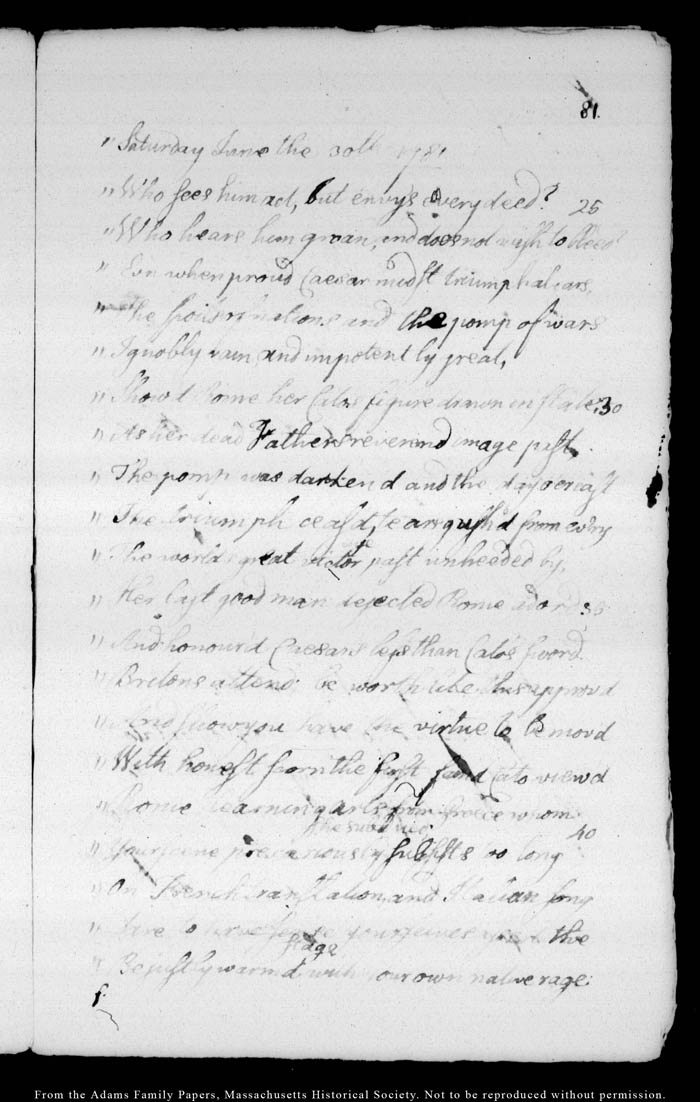 81.
" Saturday June the 30th 1781
" Who sees him act, but envy's every deed? 25
" Who hears him groan, and does not wish to bleed?
" Evn when proud Caesar midst triumphal cars,
" The spoils of nations and the pomp of wars
" Ignobly vain, and impotently great,
" Show'd Rome her Cato's figure drawn in state; 30
" As her dead Fathers reverend image past,
" The pomp was darken'd and the day oercast
" The triumph ceas'd, tears gush'd from evry
" The world's great victor past unheeded by,
" Her last good man dejected Rome ador'd 35
" And honour'd Caesars less than Cato's sword.
" Britons attend: be worth like this approv'd
" And show you have the virtue to be mov'd
" With honest scorn the first fam'd Cato view'd
" Rome learning arts from Greece whom
she subdued; 40
" Your scene precariously subsists too long
" On French translation, and Italian song
" Dare to have sense yourselves the
stage
" Be justly warm'd with your own native rage:
From the Adams Family Papers, Massachusetts Historical Society. Not to be reproduced without permission.